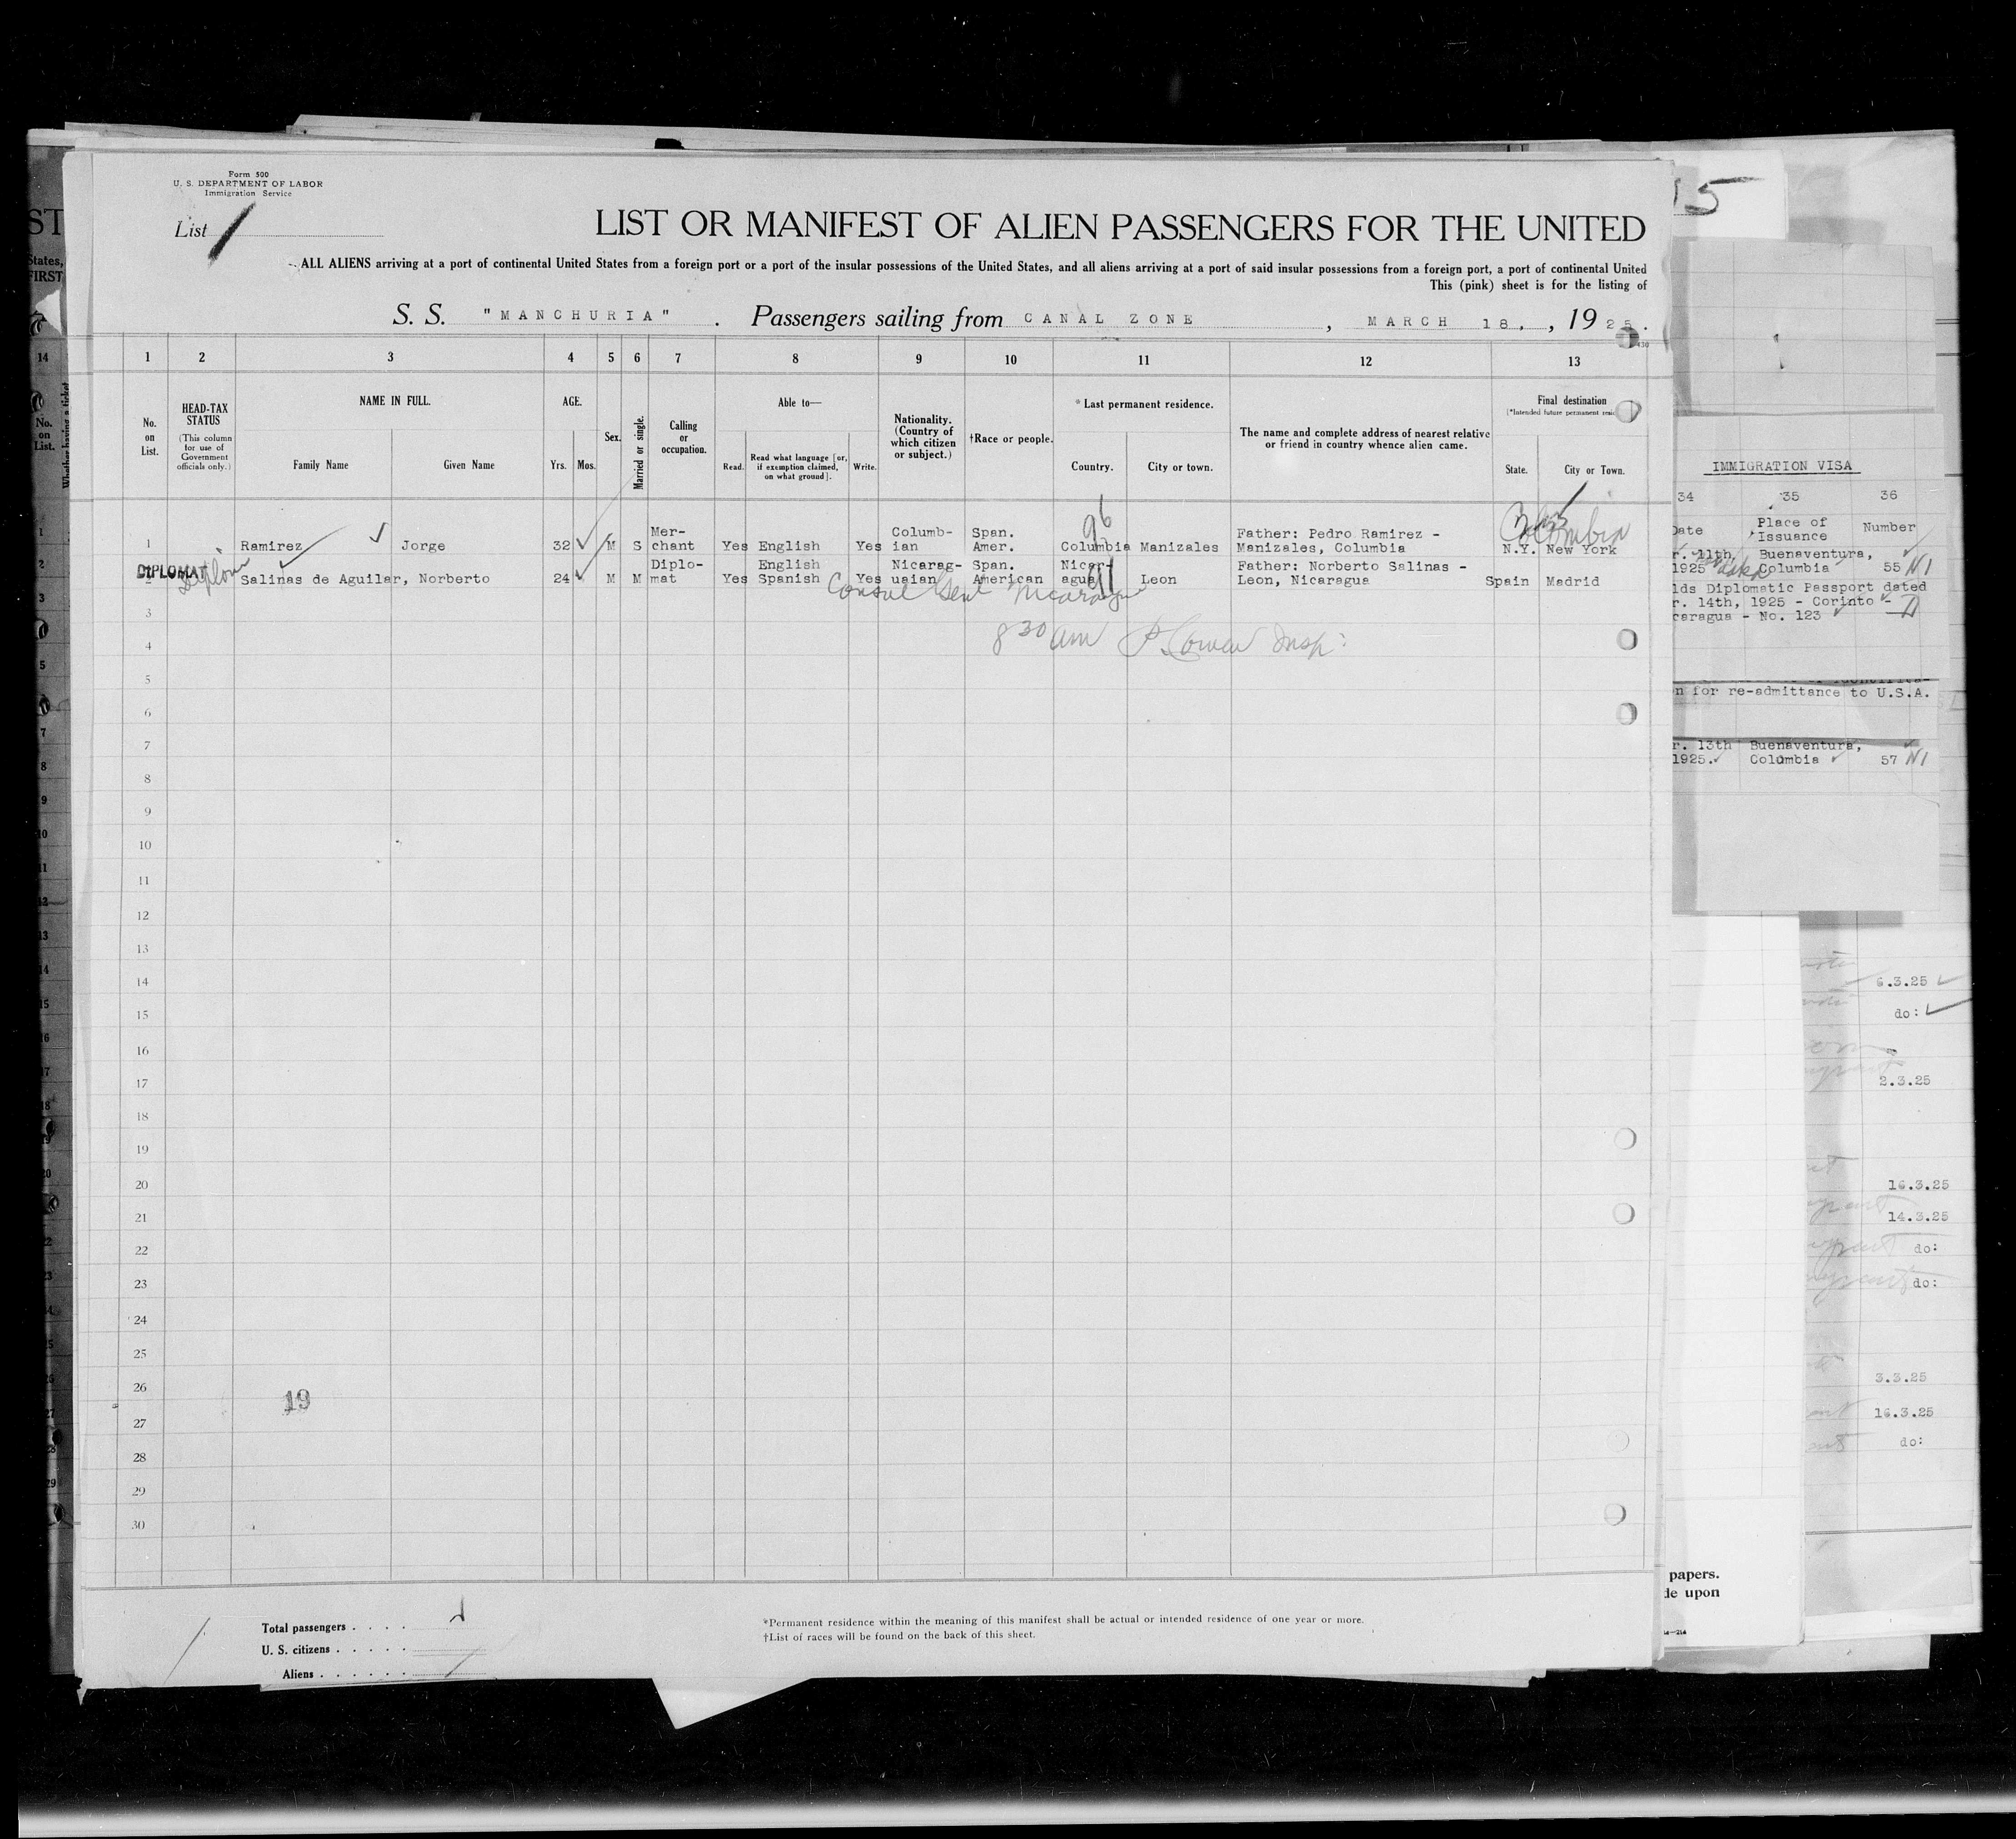 Form 500
U. S. DEPARTMENT OF LABOR
Immigration Service
List 1
LIST OR MANIFEST OF ALIEN PASSENGERS FOR THE UNITED
ALL ALIENS arriving at a port of continental United States from a foreign port or a port of the insular possessions of the United States, and all aliens arriving at a port of said insular possessions from a foreign port, a port of continental United
This (pink) sheet is for the listing of
S. S. "MANCHURIA" . Passengers sailing from CANAL ZONE , MARCH 18, , 1925.
1 2 3 4 5 6 7 8 9 10 11 12 13
No. on List.
HEAD-TAX STATUS
(This column for use of Government officials only.)
NAME IN FULL.
Family Name Given Name
AGE.
Yrs. Mos.
Sex.
Married or single.
Calling or occupation.
Able to—
Read. Read what language [or, if exemption claimed, on what ground]. Write.
Nationality. (Country of which citizen or subject.)
†Race or people.
* Last permanent residence.
Country. City or town.
The name and complete address of nearest relative or friend in country whence alien came.
Final destination
(*Intended future permanent
State. City or Town.
1 Ramirez Jorge 32 M S Mer-chant Yes English Yes Columb-ian Span. Amer. Columbia Manizales Father: Pedro Ramirez - Manizales, Columbia N.Y. New York
96
Columbia
DIPLOMAT
Salinas de Aguilar, Norberto 24 M M Diplo-mat Yes English Spanish Yes Nicarag-uaian Span. American Nicar-agua Leon Father: Norberto Salinas - Leon, Nicaragua Spain Madrid
Consul Genl Nicaragua
8 30 am Insp:
3
4
5
6
7
8
9
10
11
12
13
14
15
16
17
18
19
20
21
22
23
24
25
26
27
28
29
30
19
Total passengers . . . .
U. S. citizens . . . . .
Aliens . . . . . .
*Permanent residence within the meaning of this manifest shall be actual or intended residence of one year or more.
†List of races will be found on the back of this sheet.
15
IMMIGRATION VISA
34 35 36
Date Place of Issuance Number
r. 11th, 1925 Buenaventura, Columbia 55 NI
lds Diplomatic Passport dated
r. 14th, 1925 - Corinto -
caragua - No. 123
n for re-admittance to U.S.A.
r. 13th 1925. Buenaventura, Columbia 57 NI
6.3.25
do:
2.3.25
16.3.25
14.3.25
do:
do:
3.3.25
16.3.25
do:
papers.
de upon